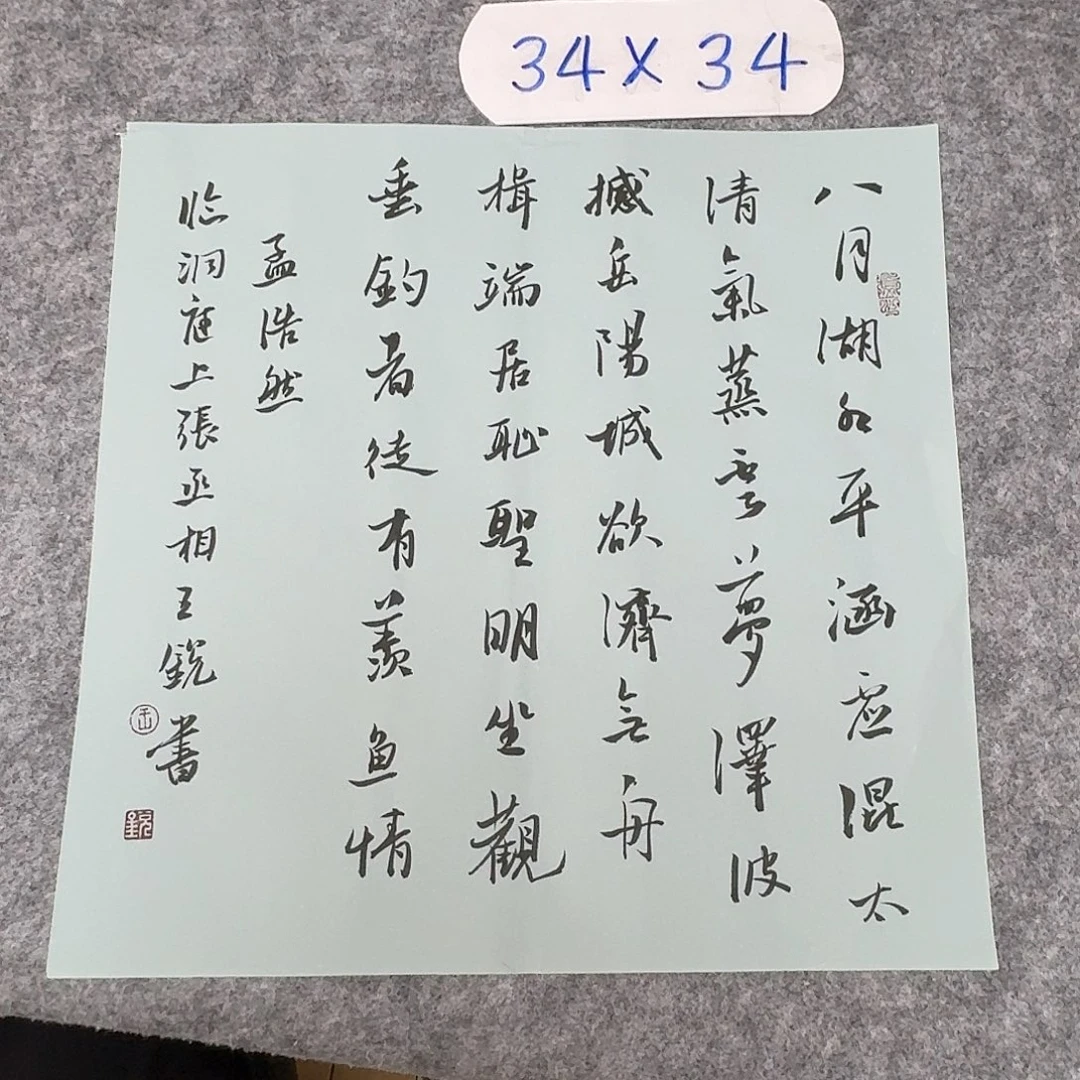 34×34
八月湖水平涵虚混太
清氣蒸雲夢澤波
撼岳陽城欲濟無舟
楫端居恥聖明坐觀
垂釣者徒有羨魚情
孟浩然
临洞庭上張丞相王銳書